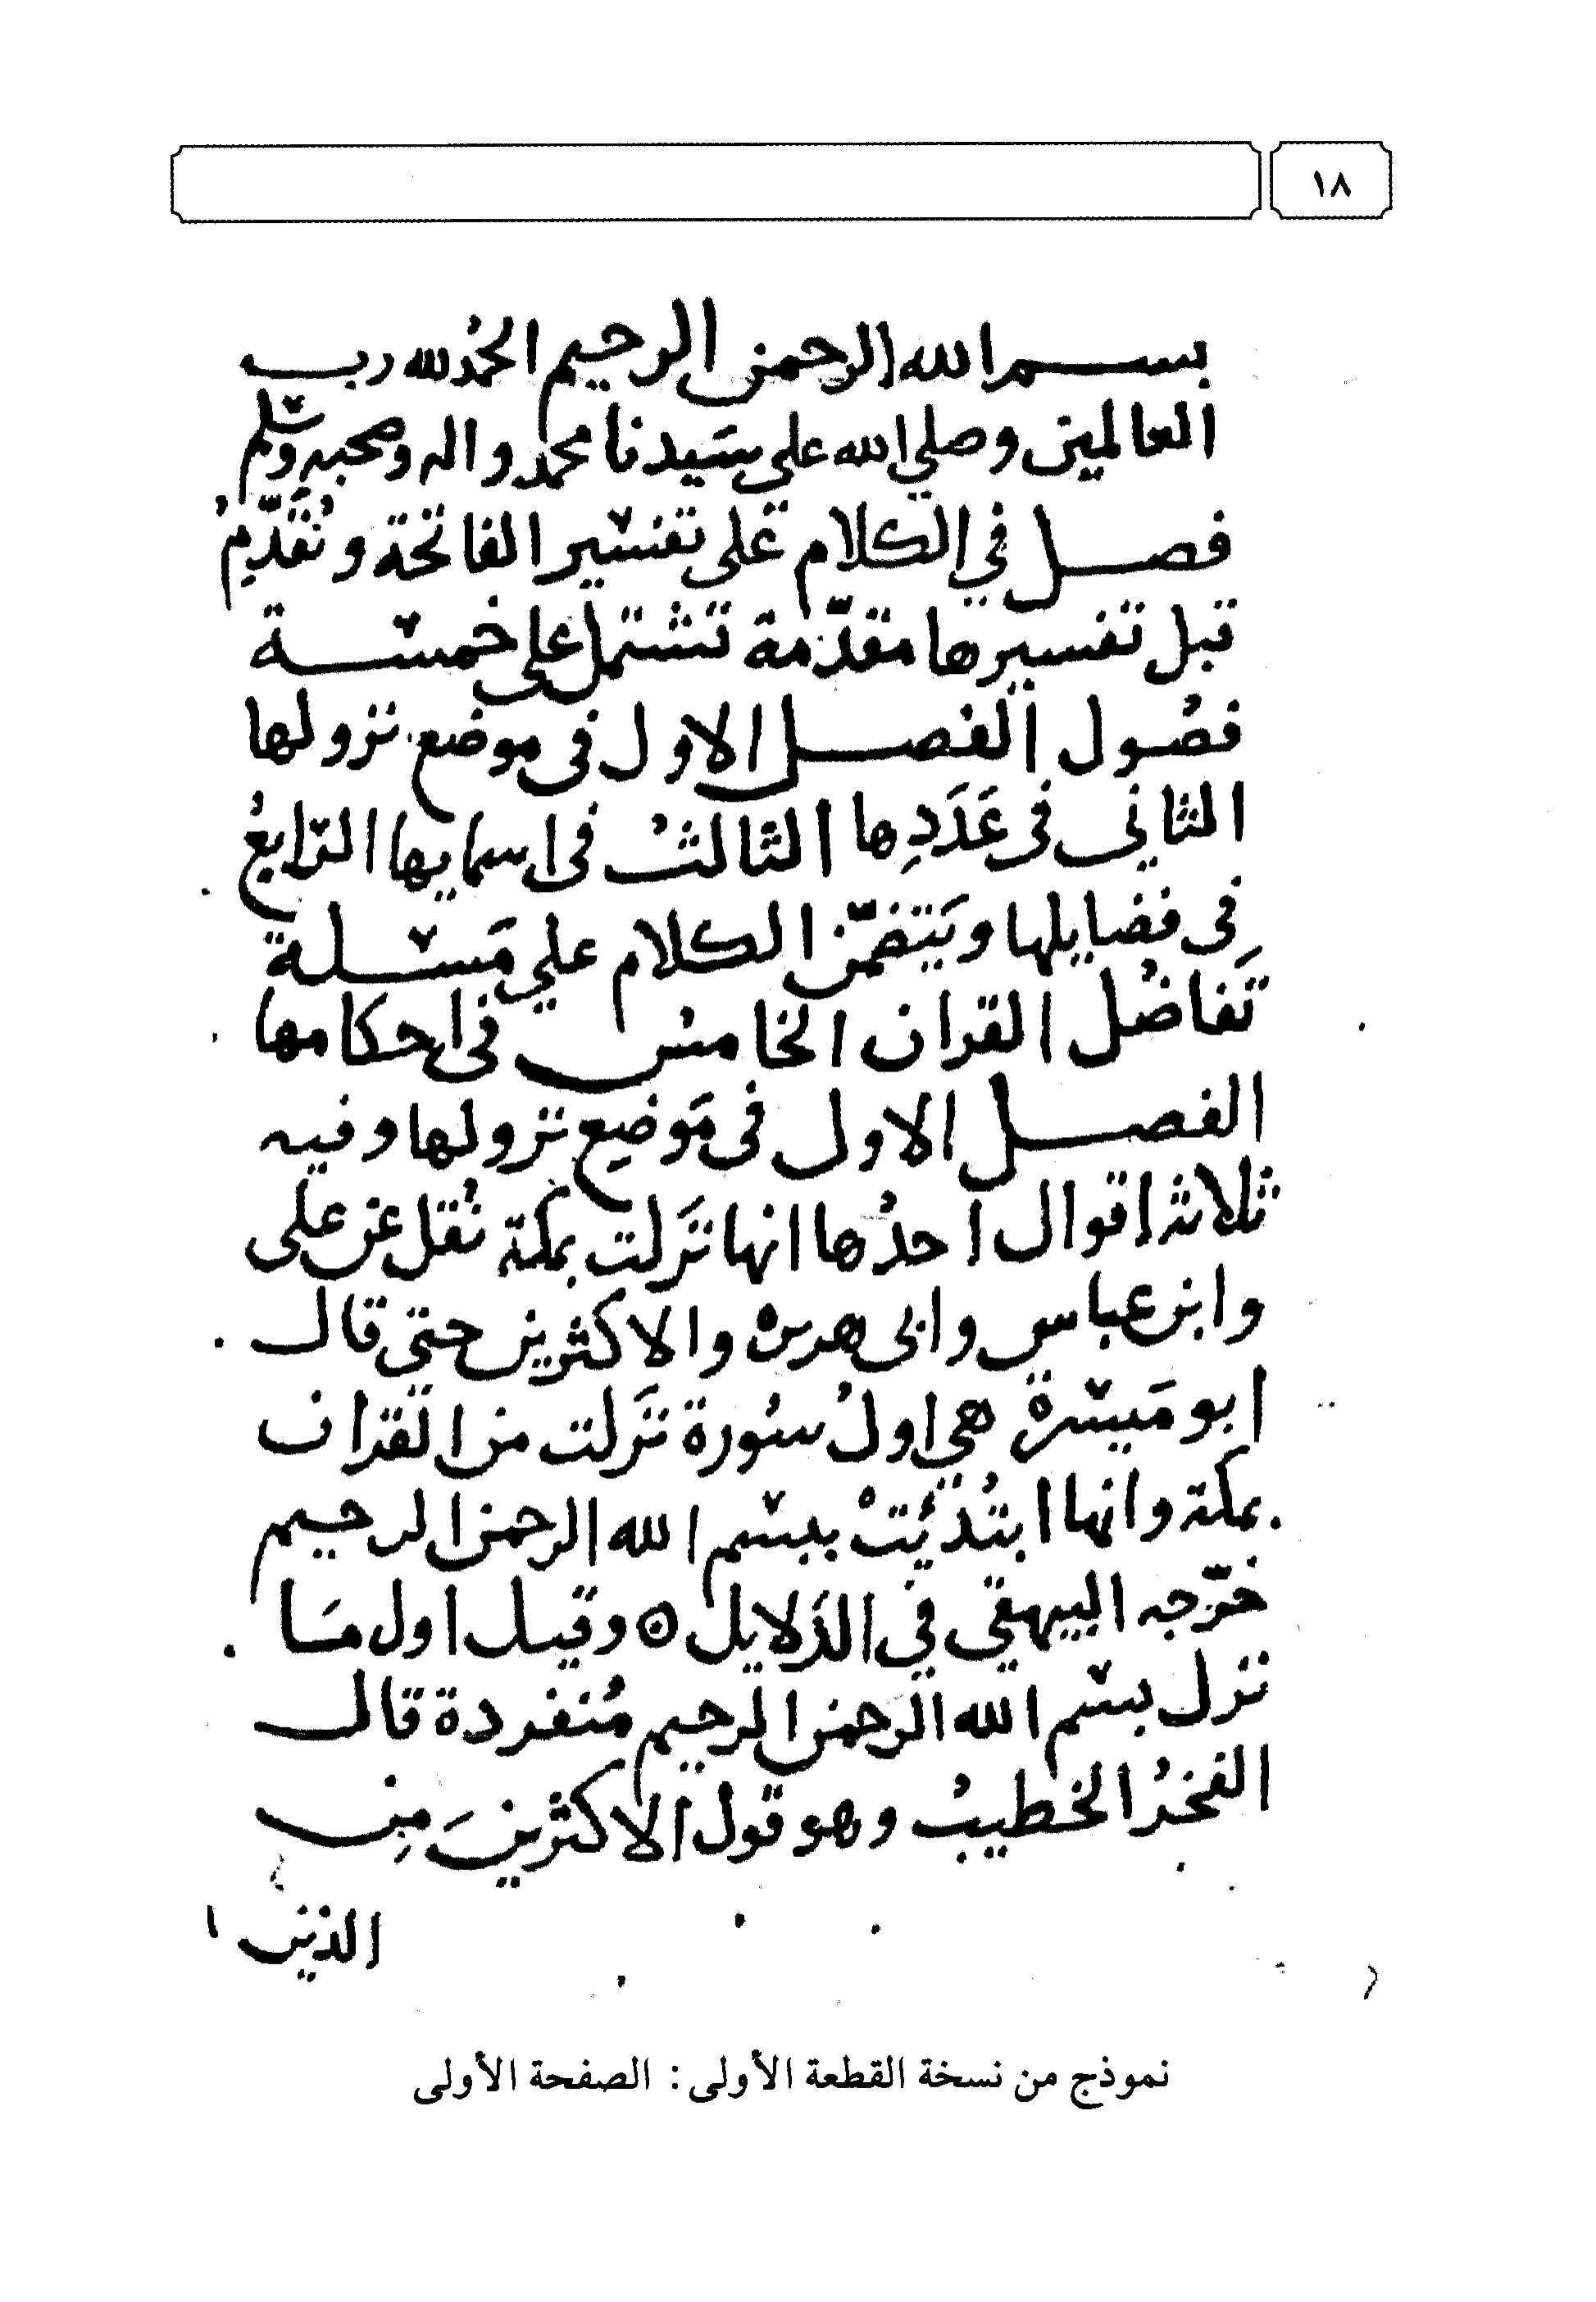 ١٨
بسم الله الرحمن الرحيم الحمدُ لله رب
العالمين وصلي الله على سَيدنا محمد واله وصحبه وسلم
فصل في الكلام على تفسير الفاتحة ونُقَدِّمُ
قبل تفسيرها مقدّمة تشتمل على خمسة
فصُول الفصل الاول فى موضع نزولها
الثاني فى عَدَدِها الثالثُ فى اسمايها الرّابعُ
فِى فضايلها ويَتضمّن الكلام علي مَسلة
تَفاضُل القران الخامس فى احكامها
الفصل الاول فى مَوضِع نزولها وفيه
ثلاثة اقوال احدُها انها نزَلت بمكة نُقل عن على
وابن عباس وابى هريرة والاكثرين حتى قال
ابو مَيسرة هي اولُ سُورة نزَلت من القران
بمكة وانها ابتُدِئَتْ ببسم الله الرحمن الرحيم
خرّجه البيهقي في الدَلايل ۞ وقيل اول مَا
نزل بسم الله الرحمن الرحيم مُنفردة قال
الفخرُ الخطيبُ وهو قول الاكثرينَ مِن
الذين
نموذج من نسخة القطعة الأولى: الصفحة الأولى